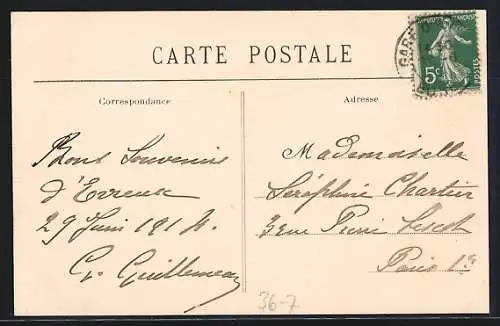 CARTE POSTALE
Correspondance
Adresse
Bons Souvenirs
d'Evreux
29 Juin 1914.
G. Guillemeau
Mademoiselle
Séraphine Chartier
3 rue Pierre Lescot
Paris 1er
5c
POSTES
GARE
36-7